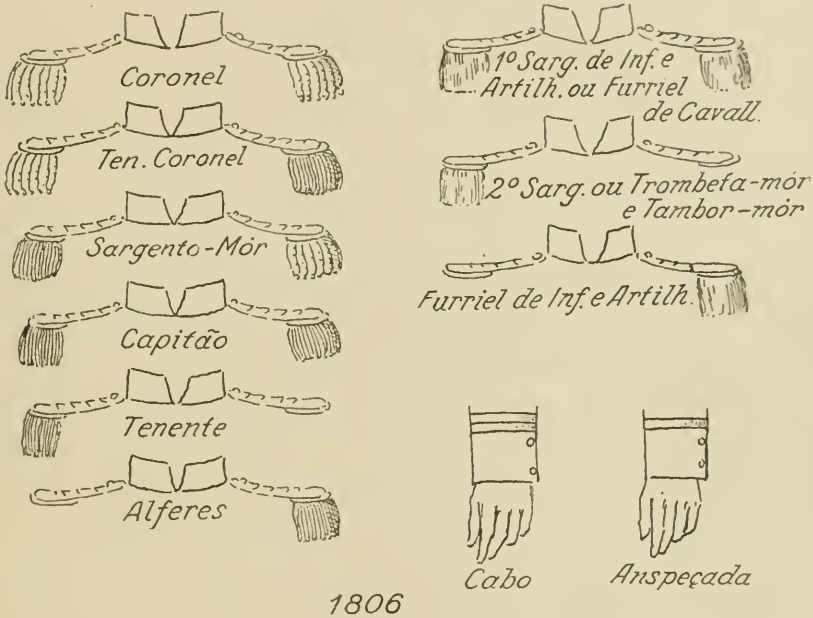 Coronel
Ten. Coronel
Sargento-Mór
Capitão
Tenente
Alferes
1º Sarg. de Inf. e
Artilh. ou Furriel
de Cavall.
2º Sarg. ou Trombeta-mór
e Tambor-mór
Furriel de Inf. e Artilh.
Cabo
Anspeçada
1806